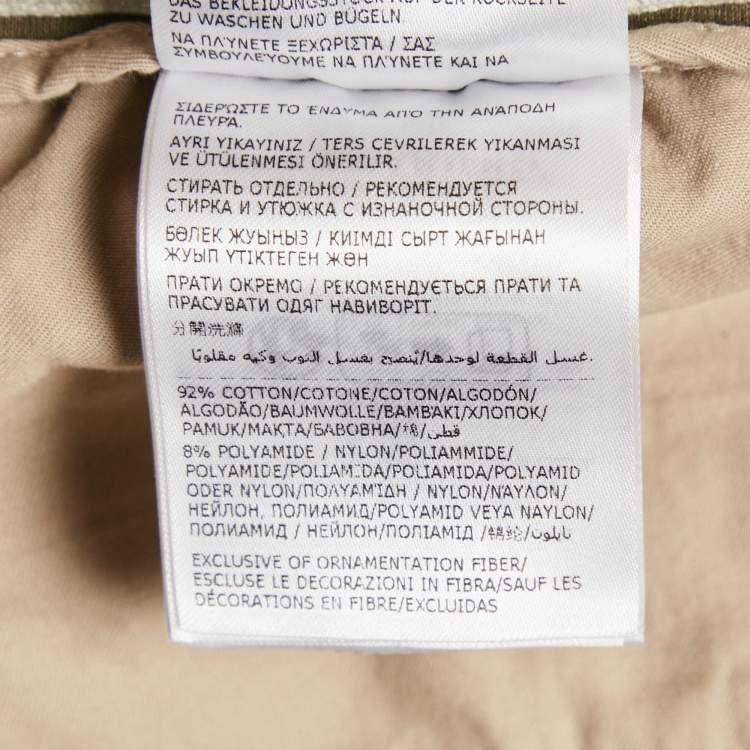 DAS BEKLEIDUNGSSTÜCK AUF DER RÜCKSEITE
ZU WASCHEN UND BÜGELN.
ΝΑ ΠΛΎΝΕΤΕ ΞΕΧΩΡΙΣΤΆ / ΣΑΣ
ΣΥΜΒΟΥΛΕΎΟΥΜΕ ΝΑ ΠΛΎΝΕΤΕ ΚΑΙ ΝΑ
ΣΙΔΕΡΏΣΤΕ ΤΟ ΈΝΔΥΜΑ ΑΠΌ ΤΗΝ ΑΝΆΠΟΔΗ
ΠΛΕΥΡΆ.
AYRI YIKAYINIZ / TERS CEVRILEREK YIKANMASI
VE ÜTÜLENMESI ÖNERILIR.
СТИРАТЬ ОТДЕЛЬНО / РЕКОМЕНДУЕТСЯ
СТИРКА И УТЮЖКА С ИЗНАНОЧНОЙ СТОРОНЫ.
БӨЛЕК ЖУЫҢЫЗ / КИІМДІ СЫРТ ЖАҒЫНАН
ЖУЫП ҮТІКТЕГЕН ЖӨН
ПРАТИ ОКРЕМО / РЕКОМЕНДУЄТЬСЯ ПРАТИ ТА
ПРАСУВАТИ ОДЯГ НАВИВОРІТ.
分開洗滌
غسل القطعة لوحدها/يُنصح بغسل الثوب وكيه مقلوبًا.
92% COTTON/COTONE/COTON/ALGODÓN/
ALGODÃO/BAUMWOLLE/ΒΑΜΒΆΚΙ/ХЛОПОК/
PAMUK/МАҚТА/БАВОВНА/棉/قطن
8% POLYAMIDE / NYLON/POLIAMMIDE/
POLYAMIDE/POLIAMIDA/POLIAMIDA/POLYAMID
ODER NYLON/ΠΟΛΥΑΜΊΔΗ / NYLON/ΝΆΥΛΟΝ/
НЕЙЛОН, ПОЛИАМИД/POLYAMID VEYA NAYLON/
ПОЛИАМИД / НЕЙЛОН/ПОЛІАМІД /錦綸/نايلون
EXCLUSIVE OF ORNAMENTATION FIBER/
ESCLUSE LE DECORAZIONI IN FIBRA/SAUF LES
DÉCORATIONS EN FIBRE/EXCLUIDAS